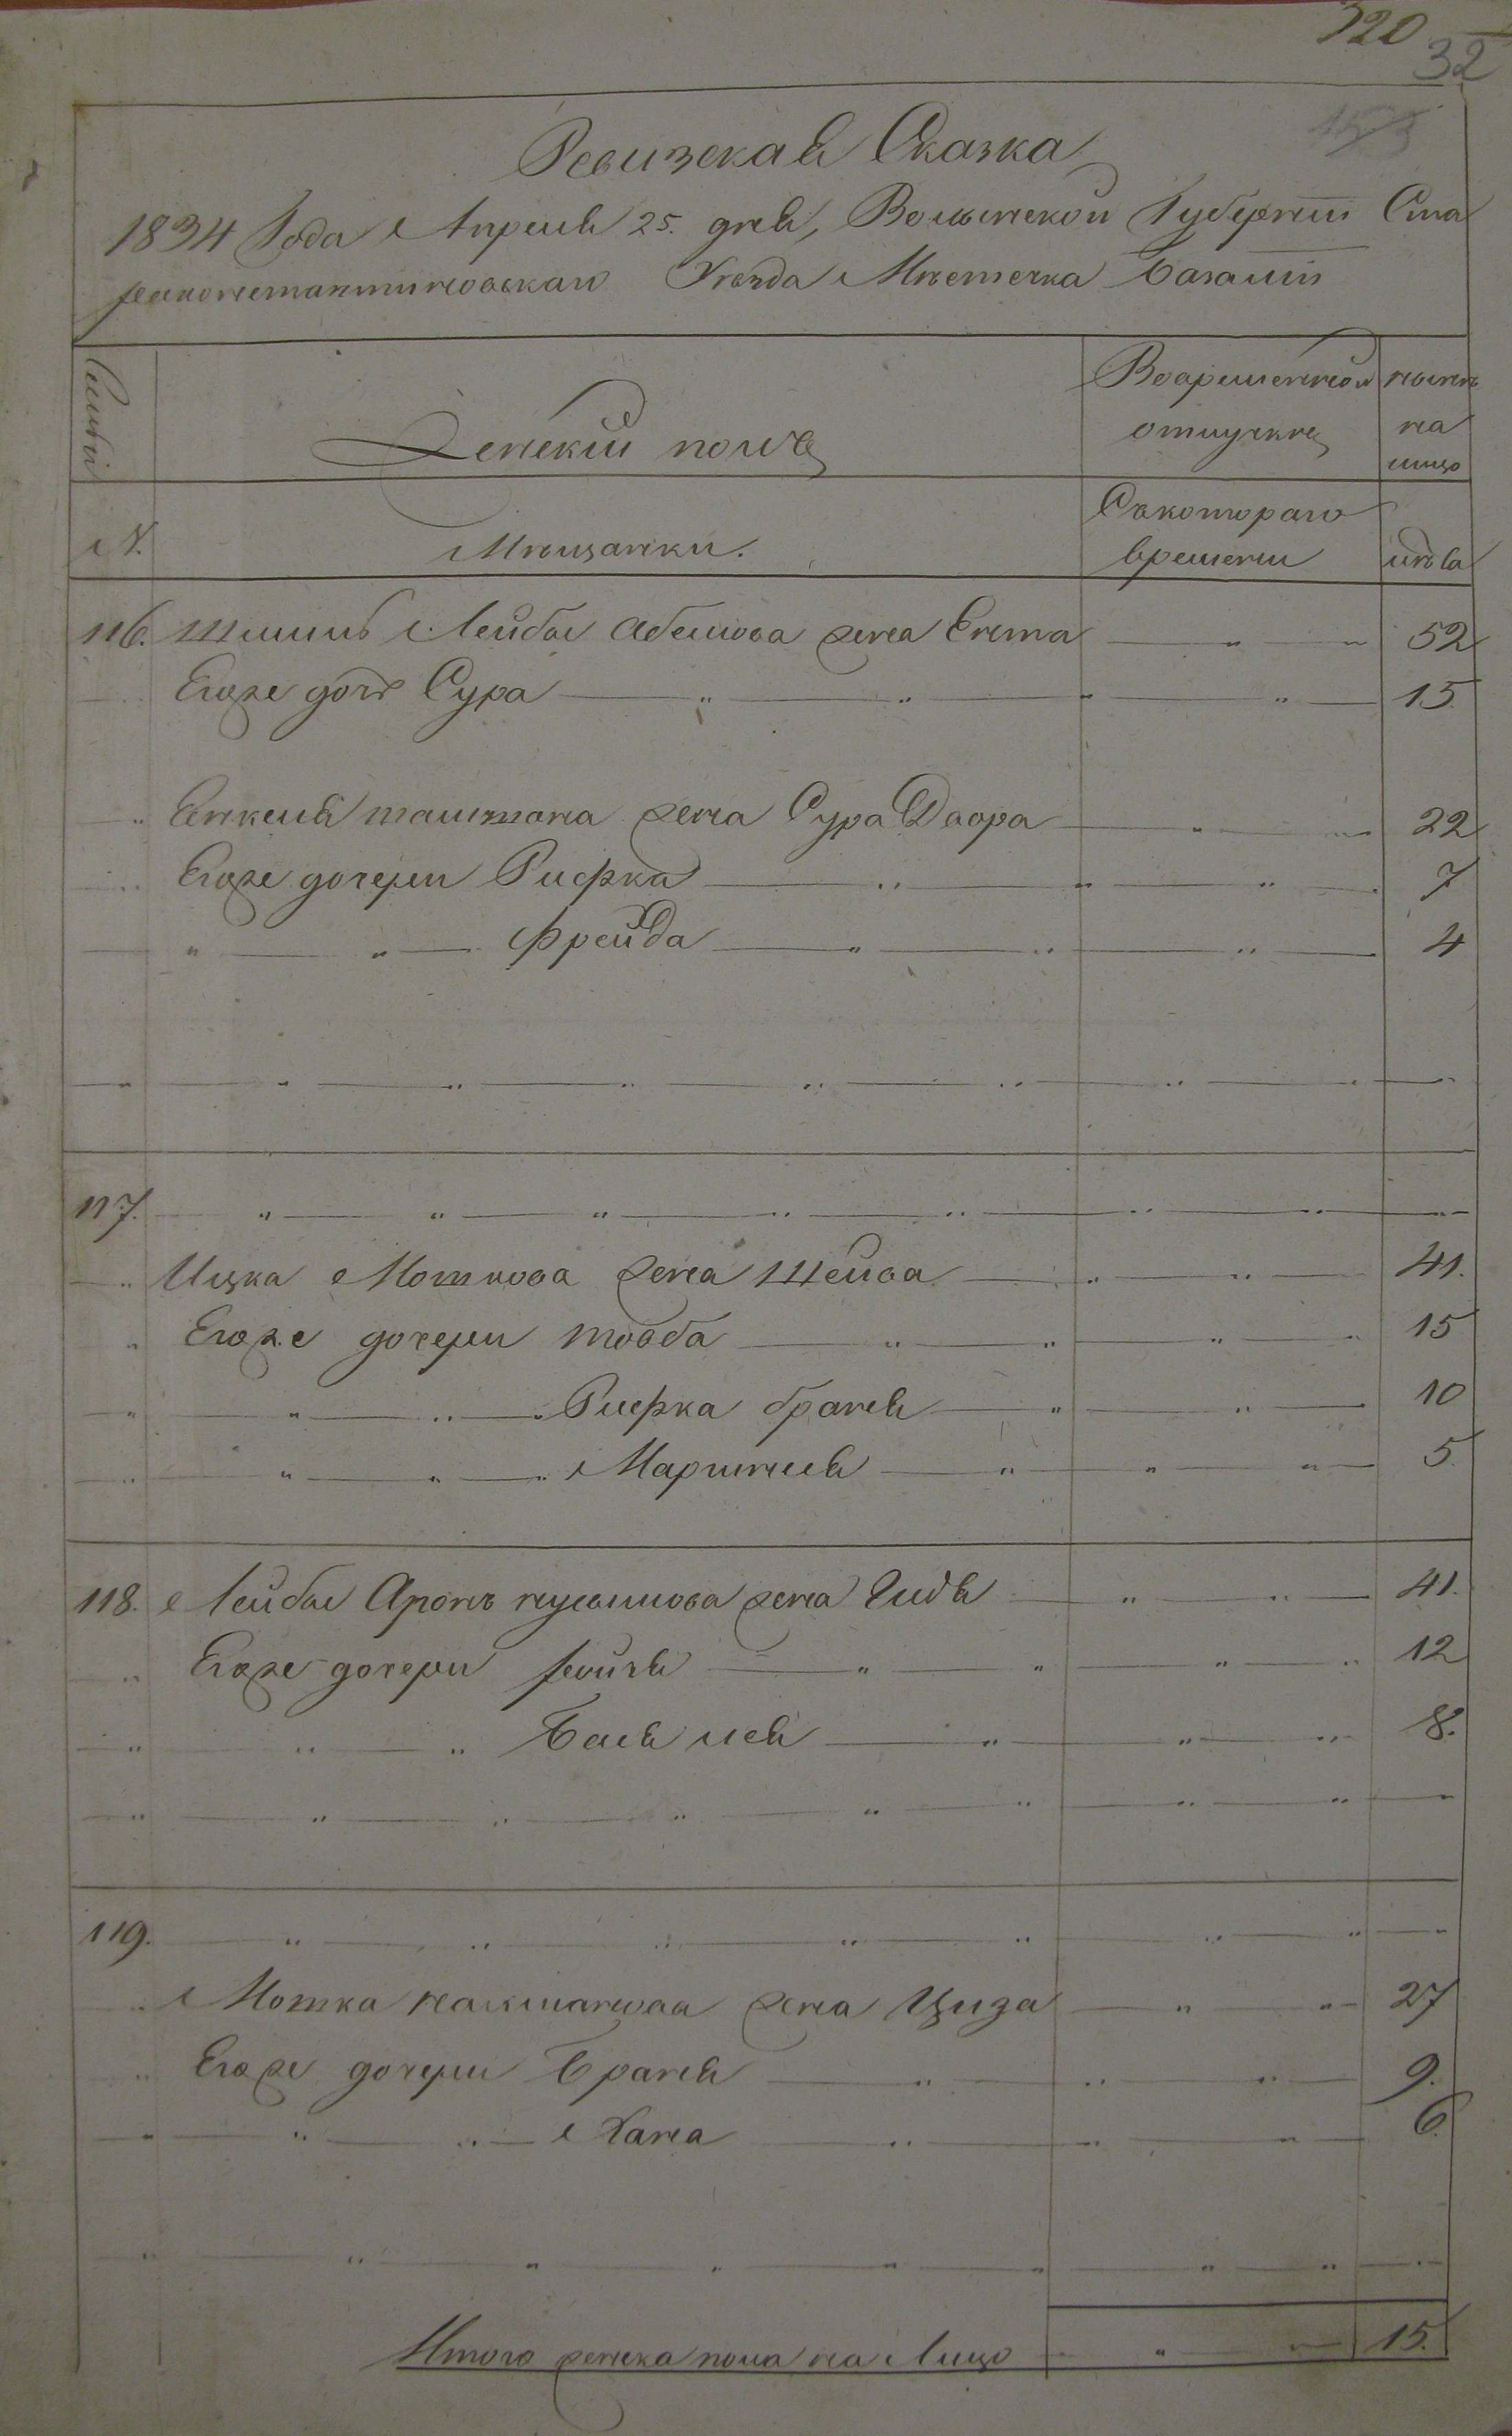 320
32
Ревизская Сказка
1834 Года Апреля 25. дня, Волынской Губернiи Ста
роконстантиновскаго Уѣзда Мѣстечка Базалiи
Семьи
Женскiй полъ
Во временной отлучкѣ
нынѣ на лицо
N.
Мѣщанки.
Съ котораго времени
лѣта
116. Шмиль Лейбы Абелиова жена Ента — " — " 52
Егоже дочь Сура — " — " — " — " — 15
" Енкеля таитмана жена Сура Двора — " — " 22
" Егоже дочери Рифка — " — " — " — 7
" — " — Фрейда — " — " — " — 4
117. — " — " — " — " — " — " — " —
" Ицка Моткова жена Шейва — " — " — 41.
" Егоже дочери товба — " — " — " — " 15
" — " — " — Рифка браня — " — " — 10
" — " — " — Мариля — " — " — " — 5.
118. Лейбы Аронъ нусимова жена Гидя — " — " — 41.
" Егоже дочери рейзя — " — " — " — " 12
" " — " Бася лея — " — " — " 8.
119. — " — " — " — " — " — " — " —
" Мотка нахмановаа жена Циза — " — " — 27
" Егоже дочери Браня — " — " — " — 9.
" — " — " — Хана — " — " — " — 6.
Итого женска пола на Лицо — " — " — 15.